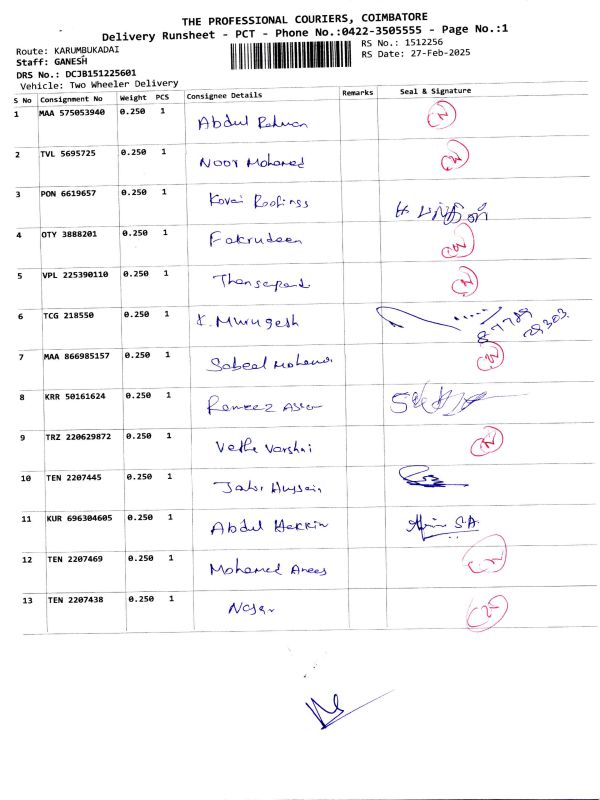 THE PROFESSIONAL COURIERS, COIMBATORE
Delivery Runsheet - PCT - Phone No.:0422-3505555 - Page No.:1
Route: KARUMBUKADAI
RS No.: 1512256
Staff: GANESH
RS Date: 27-Feb-2025
DRS No.: DCJB151225601
Vehicle: Two Wheeler Delivery
S No Consignment No Weight PCS Consignee Details Remarks Seal & Signature
1 MAA 575053940 0.250 1 Abdul Rahman
2 TVL 5695725 0.250 1 Noor Mohamed
3 PON 6619657 0.250 1 Kovai Roofings
4 OTY 3888201 0.250 1 Fakrudeen
5 VPL 225390110 0.250 1
6 TCG 218550 0.250 1 K. Murugesh
87789
29303
7 MAA 866985157 0.250 1 Mohamed
8 KRR 50161624 0.250 1 Rameez
9 TRZ 220629872 0.250 1 Varshai
10 TEN 2207445 0.250 1 Jakir Hussain
11 KUR 696304605 0.250 1 Abdul S.A.
12 TEN 2207469 0.250 1 Mohamed Anees
13 TEN 2207438 0.250 1 Nasar